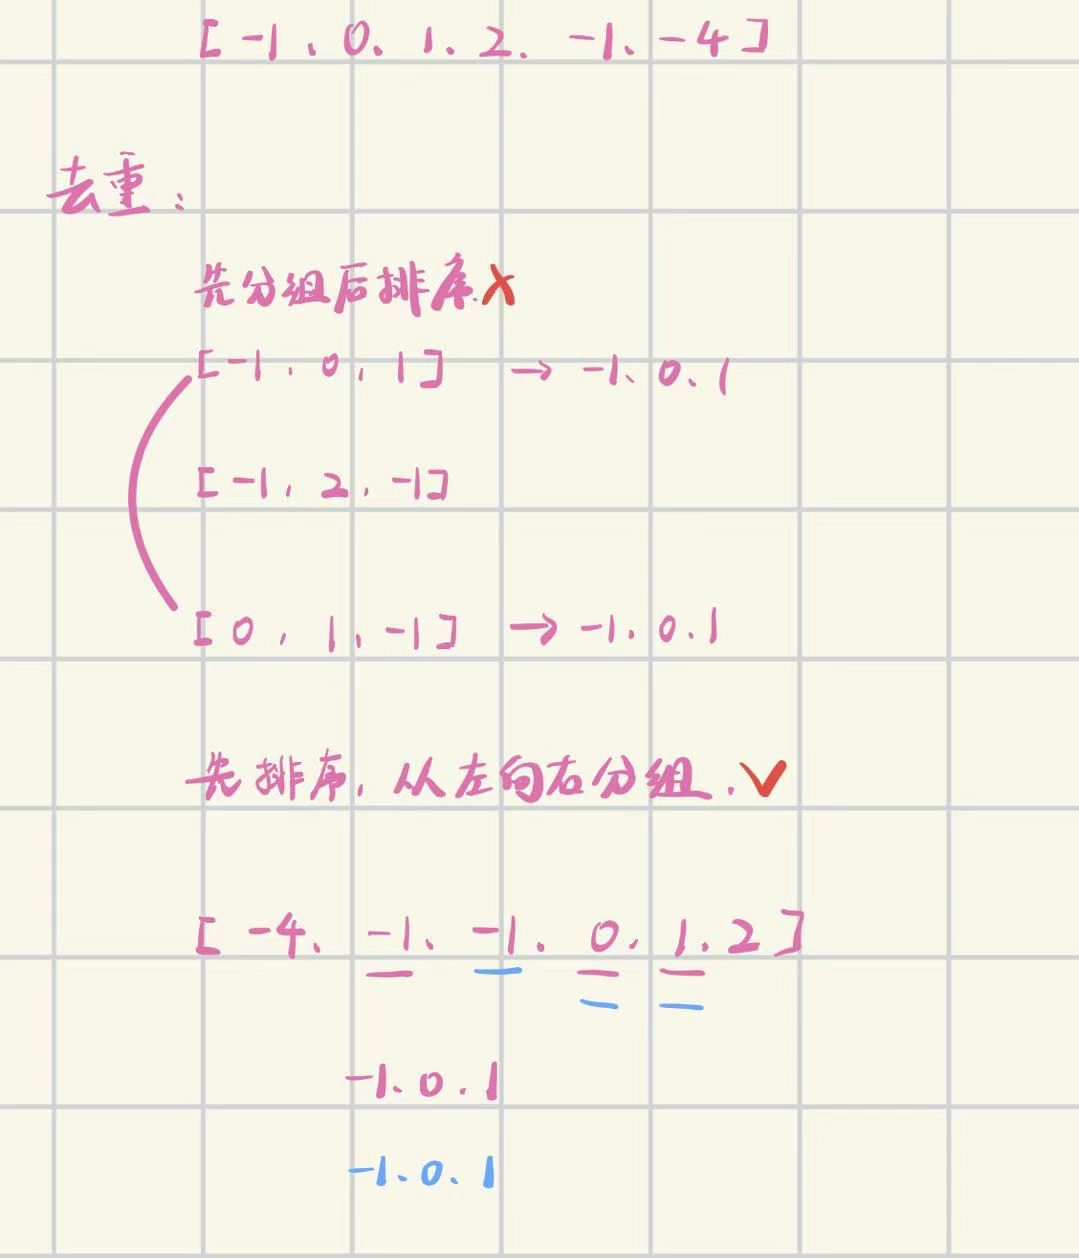 [-1、0、1、2、-1、-4]
去重：
先分组后排序.✗
[-1、0、1] → -1、0、1
[-1、2、-1]
[0、1、-1] → -1、0、1
先排序，从左向右分组.✓
[-4、-1、-1、0、1、2]
-1、0、1
-1、0、1